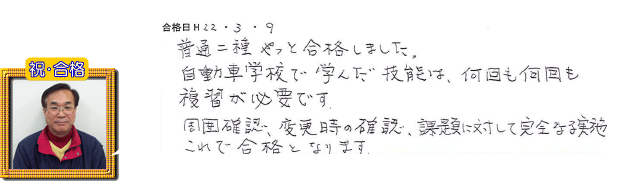 合格日H22・3・9
祝・合格
普通二種 やっと合格しました。
自動車学校で学んだ技能は、何回も何回も
複習が必要です。
周囲確認、変更時の確認、課題に対して完全なる実施
これで合格となります。